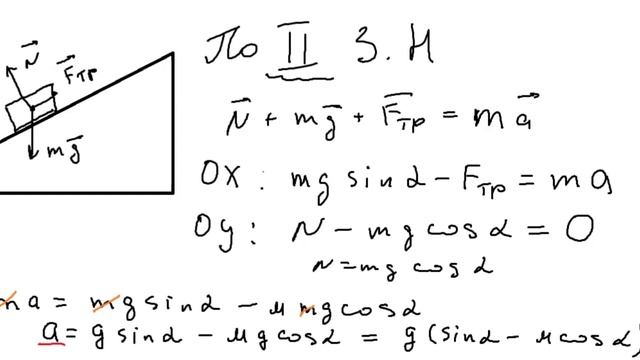 N⃗
F⃗тр
mg⃗
По II З. Н
N⃗ + mg⃗ + F⃗тр = ma⃗
OX : mg sin α − Fтр = ma
Oy : N − mg cos α = 0
N = mg cos α
ma = mg sin α − μ mg cos α
a = g sin α − μg cos α = g (sin α − μ cos α)